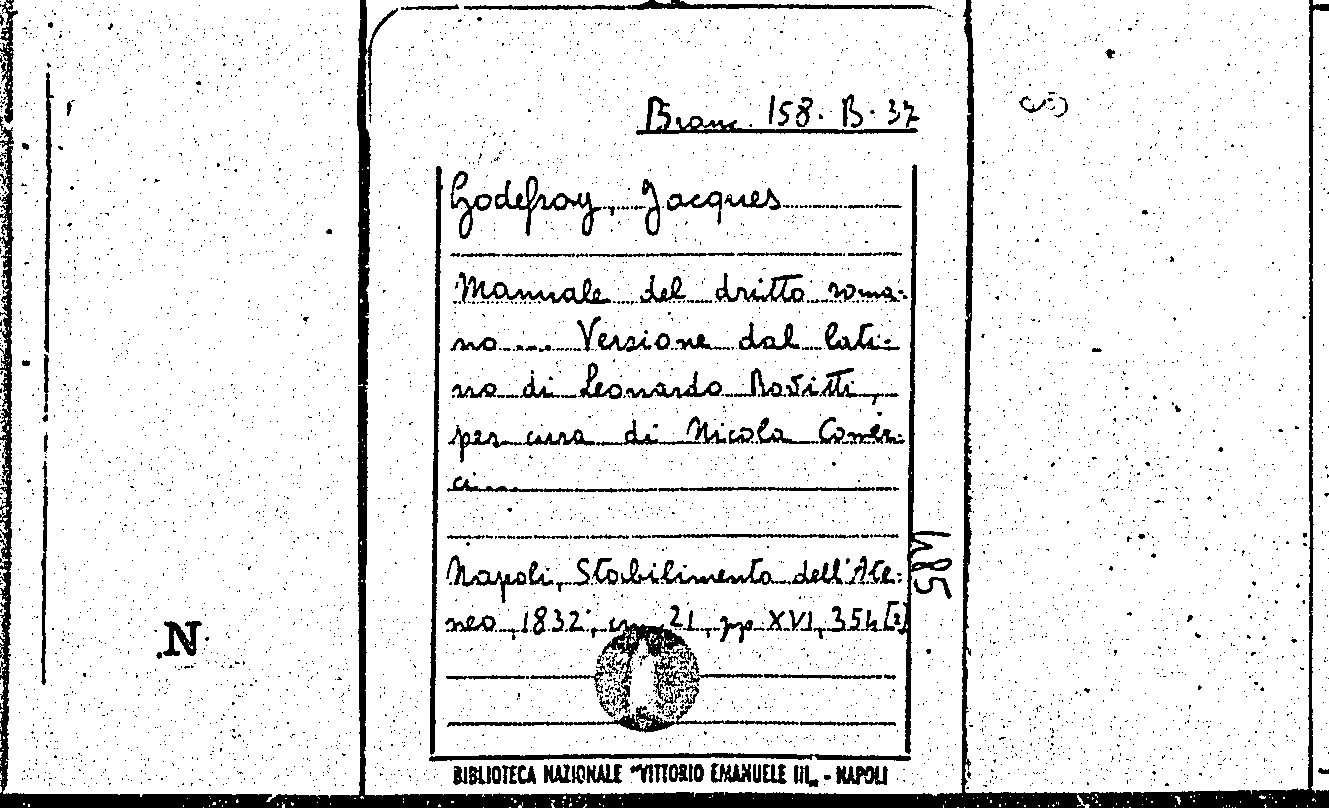 Branc. 158. B. 37
Godefroy, Jacques
Manuale del dritto roma-
no ... Versione dal lati-
no di Leonardo Rovitti,
per cura di Nicola Comer-
ci ...
Napoli, Stabilimento dell'Ate-
neo, 1832, cm 21, pp XVI, 354 [2]
485
N
BIBLIOTECA NAZIONALE "VITTORIO EMANUELE III„ - NAPOLI